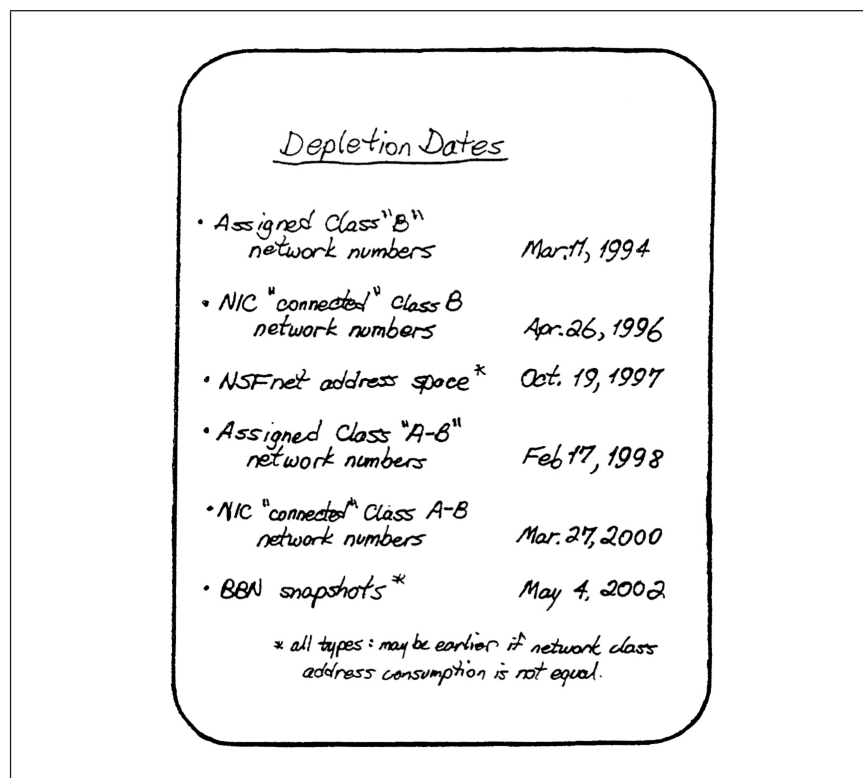 Depletion Dates
• Assigned Class "B"
network numbers Mar. 11, 1994
• NIC "connected" Class B
network numbers Apr. 26, 1996
• NSFnet address space* Oct. 19, 1997
• Assigned Class "A-B"
network numbers Feb 17, 1998
• NIC "connected" Class A-B
network numbers Mar. 27, 2000
• BBN snapshots* May 4, 2002
* all types: may be earlier if network class
address consumption is not equal.